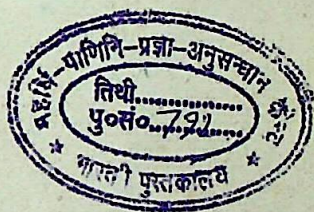 महर्षि-पाणिनि-प्रज्ञा-अनुसन्धान केन्द्र
तिथी..............
पु०सं० 792
* भारती पुस्तकालय *